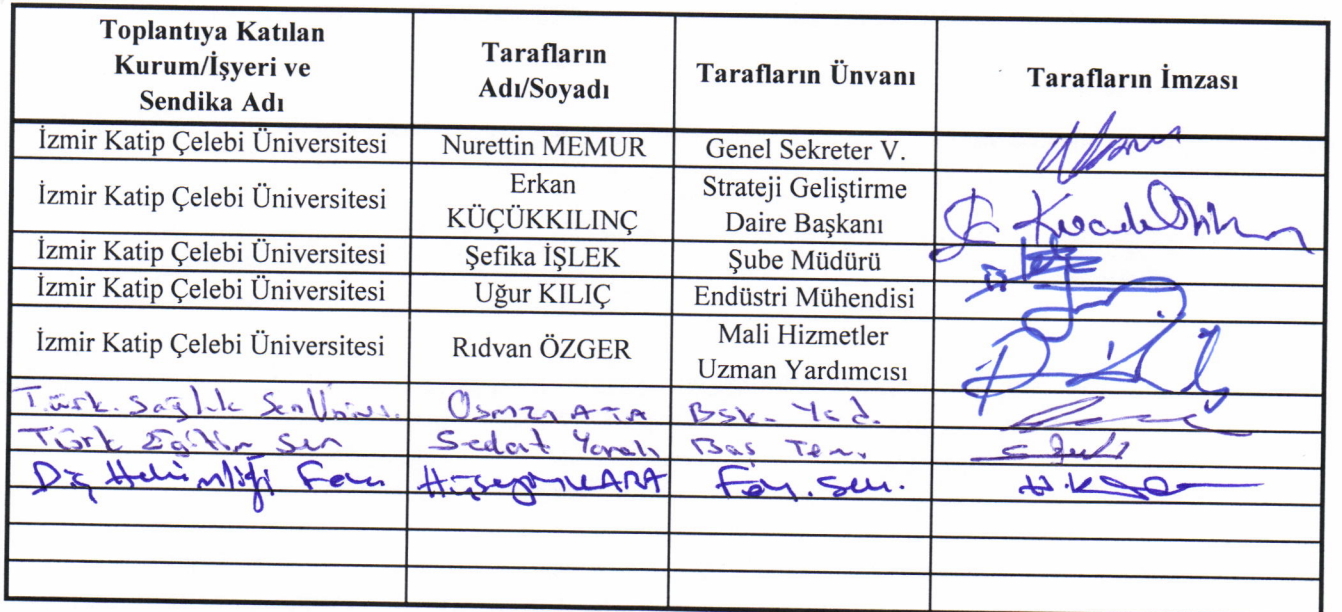 Toplantıya Katılan
Kurum/İşyeri ve
Sendika Adı
Tarafların
Adı/Soyadı
Tarafların Ünvanı
Tarafların İmzası
İzmir Katip Çelebi Üniversitesi Nurettin MEMUR Genel Sekreter V.
İzmir Katip Çelebi Üniversitesi
Erkan
KÜÇÜKKILINÇ
Strateji Geliştirme
Daire Başkanı
İzmir Katip Çelebi Üniversitesi Şefika İŞLEK Şube Müdürü
İzmir Katip Çelebi Üniversitesi Uğur KILIÇ Endüstri Mühendisi
İzmir Katip Çelebi Üniversitesi Rıdvan ÖZGER
Mali Hizmetler
Uzman Yardımcısı
Türk. Sağlık Sen Osman ATA Bşk. Yrd.
Türk Eğitim Sen Sedat Yaralı Baş Tem.
Diş Hekimliği Fak Hüseyin KARA Fak. Sek.